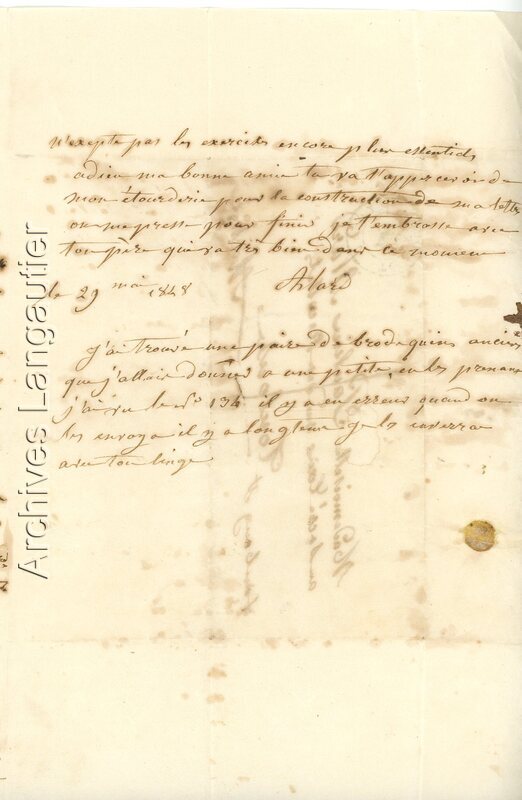 n'exepte pas les exercices encore plus essentiels
adieu ma bonne amie tu va t'appercevoir de
mon étourderie pour la construction de ma lettre
on me presse pour finir je t'embrasse avec
ton père qui va très bien dans ce moment
le 29 mai 1848 Alard
j'ai trouvé une paire de brodequins anciens
que j'allais donner a une petite, en les prenant
j'ai vu le n° 134 il y a eu erreur quand on
les envoya il y a longtems je les
avec ton linge
Archives Langautier